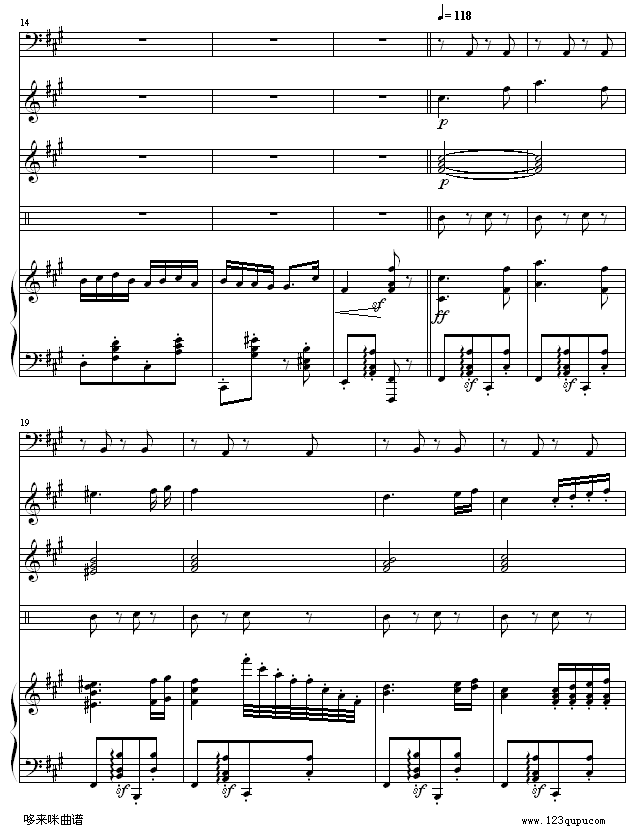 14
♩= 118
p
p
sf
ff
sf
sf
19
sf
sf
sf
sf
哆来咪曲谱
www.123qupu.com